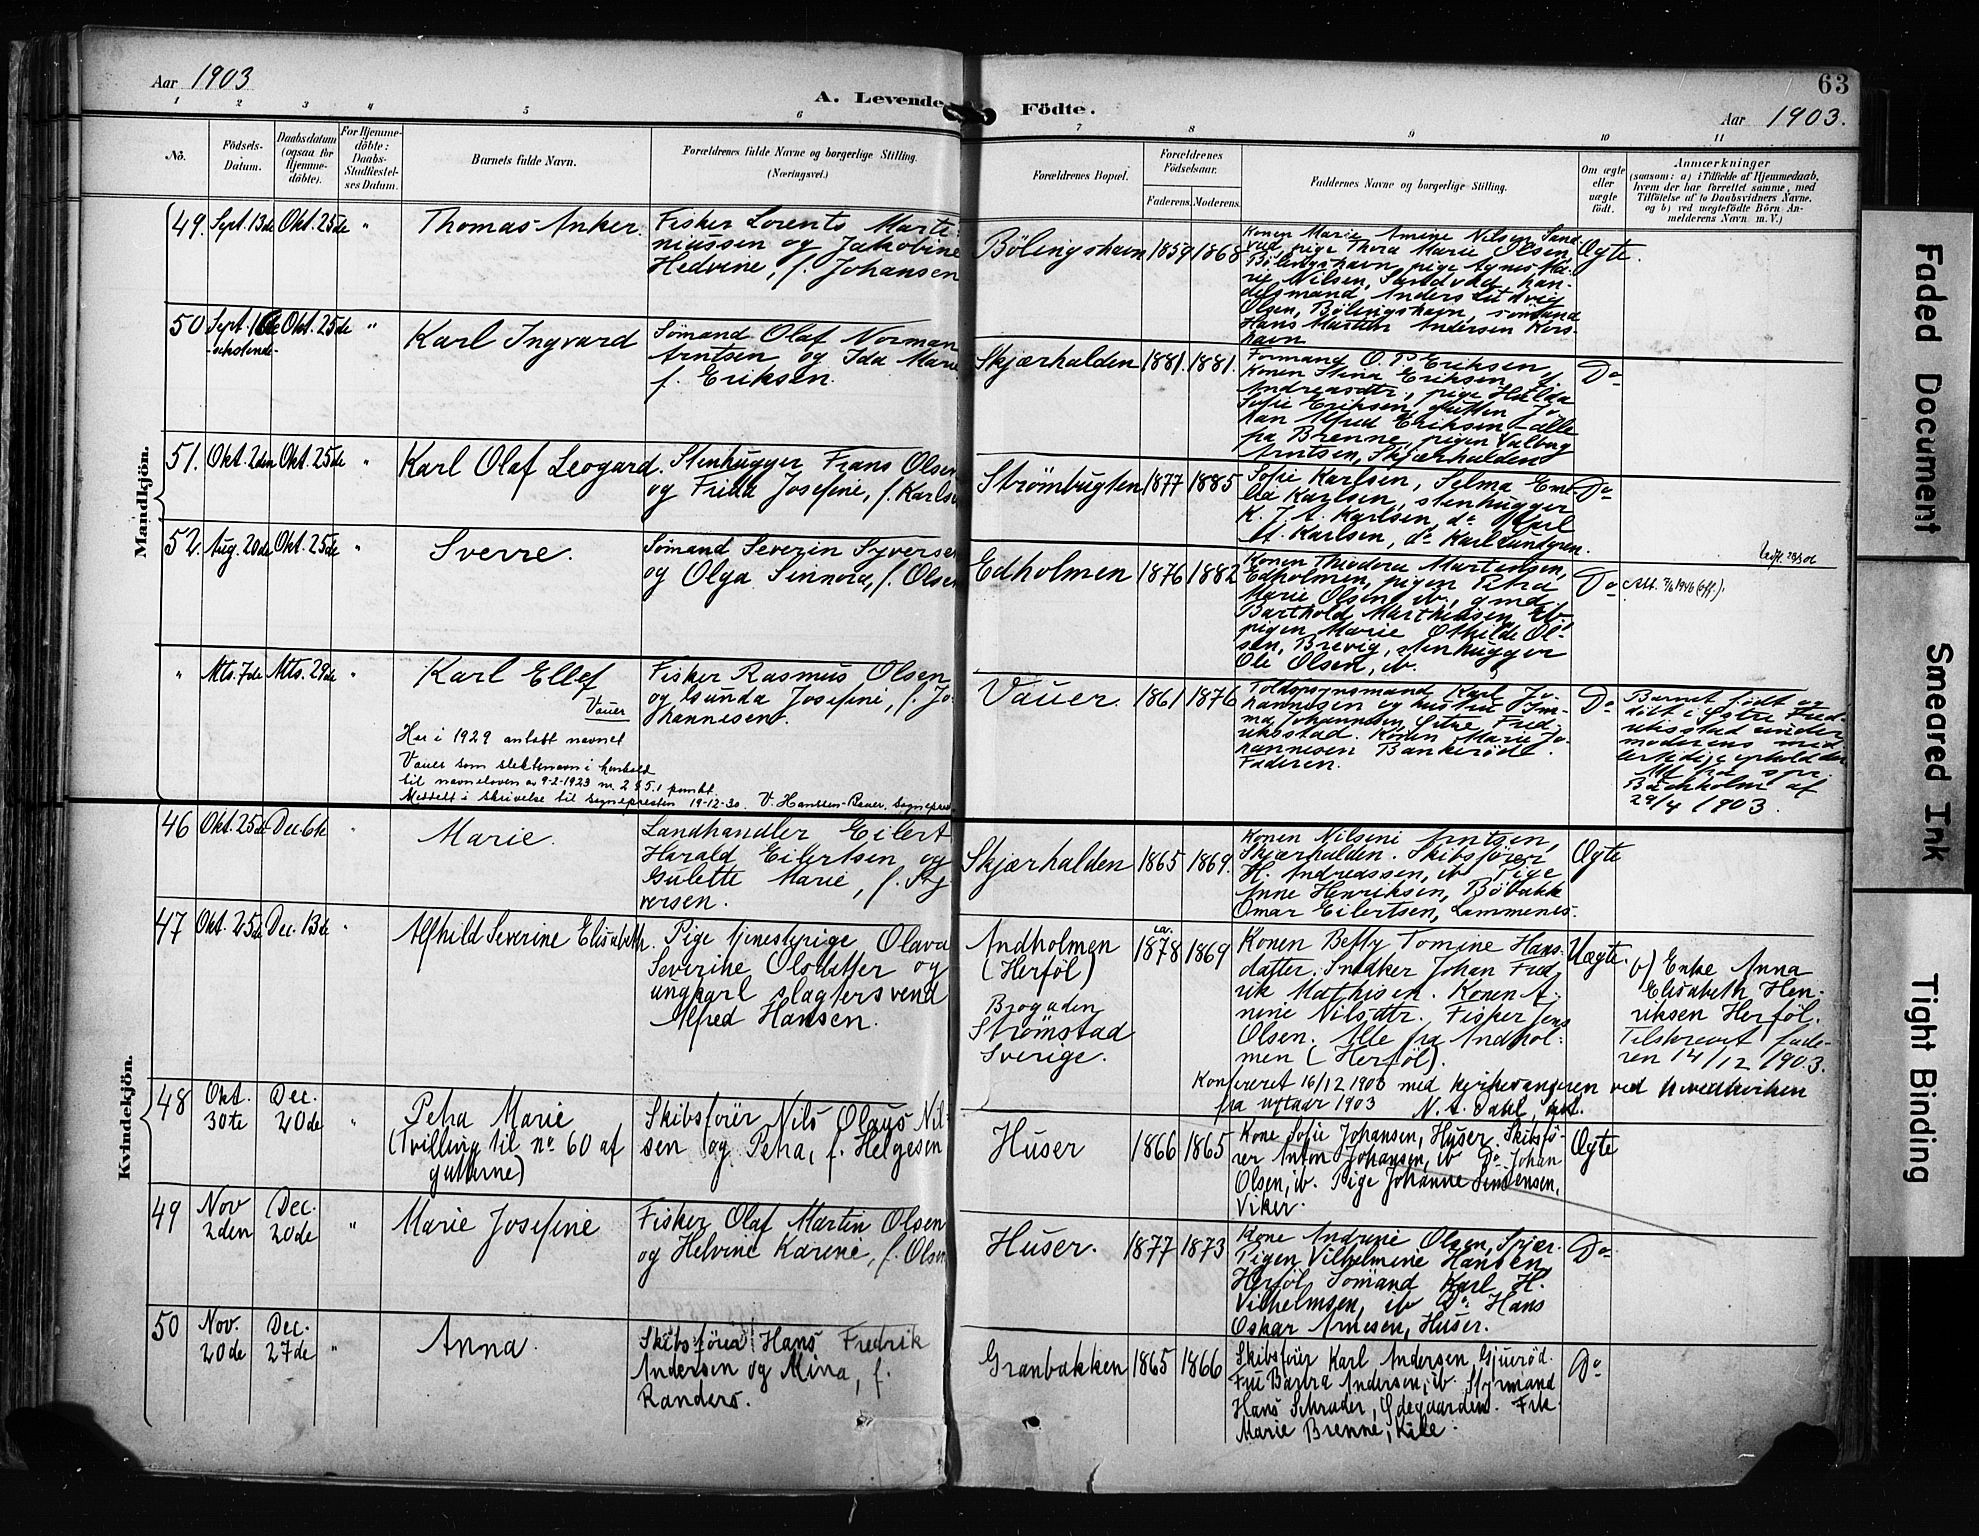 Aar 1903
A. Levende Födte.
63
Aar 1903.
1 2 3 4 5 6 7 8 9 10 11
No.
Födsels-
Datum.
Daabsdatum
(ogsaa for
Hjemme-
döbte).
For Hjemme-
döbte:
Daabs-
Stadfæstel-
ses Datum.
Barnets fulde Navn.
Forældrenes fulde Navne og borgerlige Stilling.
(Næringsvei.)
Forældrenes Bopæl.
Forældrenes
Födselsaar.
Faderens. Moderens.
Faddernes Navne og borgerlige Stilling.
Om ægte
eller
uægte
født.
Anmærkninger
(saasom: a) i Tilfælde af Hjemmedaab,
hvem der har forrettet samme, med
Tilföielse af to Daabsvidners Navne,
og b) ved uægtefödte Börn An-
melderens Navn m. V.)
Mandkjön.
49. Sept. 13de Okt. 25de "
Thomas Anker.
Fisker Lorents Marti-
niussen og Jakobine
Hedvine, f. Johansen
Bølingshavn 1859 1868
Konen Marie Amine Nilsen Sand
vad, pige Thora Marie Olsen,
Bølingshavn, pige Agnes Ma-
rie Nilsen, Sandvad, han-
delsmand Anders Ludvig
Olsen, Bølingshavn, sømand
Hans Martin Andersen Kors-
havn
Ægte.
50 Sept. Okt. 25de "
Karl Ingvard
Sømand Olaf Norman
Arntsen og Ida Marie
f. Eriksen.
Skjærhalden 1881. 1881.
Formand O. P. Eriksen,
Konen Stina Eriksen, f.
Andreasdtr, pige Hulda
Sofie Eriksen, gutten Jo-
han Alfred Eriksen alle
fra Brenne, pigen Valborg
Arntsen, Skjærhalden
Do
51. Okt. 2den Okt. 25de "
Karl Olaf Leogard.
Stenhugger Frans Olsen
og Frida Josefine, f. Karlsen
Strömbugten 1877 1885
Sofie Karlsen, Selma Emi-
lia Karlsen, stenhugger
K. J. A. Karlsen, do Karl
A. Karlsen, do Karl Lundgren.
Do
52. Aug. 20de Okt. 25de "
Sverre.
Sømand Severin Syversen
og Olga Sinnora, f. Olsen
Edholmen 1876 1882
Konen Theodora Martinsen,
Edholmen, pigen Petra
Marie Olsen, ib., gmd.
Barthold Marthinsen ib.
pigen Marie Othilde Ol-
sen, Brevig, stenhugger
Ole Olsen, ib.
Do
" Mts. 7de Mts. 29de "
Karl Ellef
Vauer
Har i 1929 antatt navnet
Vauer som slektsnavn i henhold
til navneloven av 9-2-1923 nr. 2 § 5. 1 punkt.
Meddelt i skrivelse til sognepresten 19-12-30. V. Hanssen-Rauer, sogneprest
Fisker Rasmus Olsen
og Gunda Josefine, f. Jo-
hannesen.
Vauer. 1861 1876
Toldopsynsmand Karl Jo-
hannesen og hustru Em-
ma Johannesen, Østre Fred-
riksstad. Konen Marie Jo-
hannesen Bankerød.
Faderen.
Do
Barnet født og
døbt i Østre Fred-
riksstad under
moderens mid-
lertidige ophold der
Att. fra spr.
Buchholm af
29/4 1903.
Kvindekjön.
46 Okt. 25de Dec. 6te "
Marie.
Landhandler Eilert
Harald Eilertsen og
Gulette Marie, f. Sy-
versen.
Skjærhalden 1865 1869.
Konen Nilsine Arntsen,
Skjærhalden. Skibsfører
H. Andreassen, ib Pige
Anne Henriksen, Bøbakk
Omar Eilertsen, Lammenes.
Ægte
47 Okt. 25de Dec. 13de "
Alfhild Severine Elisabeth.
Pige tjenestepige Olava
Severine Olsdatter og
ungkarl slagtersvend
Alfred Hansen.
Andholmen
(Herföl)
Brogaden
Strömstad
Sverige.
ca. 1878 1869
Konen Betty Tomine Hans-
datter. Snedker Johan Fred-
rik Mathisen. Konen A-
nine Nilsdtr. Fisker Jens
Olsen. Alle fra Andhol-
men (Herföl).
Uægte.
b) Enke Anna
Elisabeth Hen-
riksen Herföl.
Tilskrevet fade-
ren 14/12 1903.
Konfereret 16/12 1903 med kirkesangeren ved hovedkirken
fra nytaar 1903 N. A. Dahl, spt.
48 Okt.
30te
Dec.
20de "
Petra Marie
(Tvilling til no 60 af
gutterne)
Skibsfører Nils Olaus Nil-
sen og Petra, f. Helgesen
Huser 1866 1865
Kone Sofie Johansen, Huser. Skibsfø-
rer Anton Johansen, ib Do Johan
Olsen, ib. Pige Johanne Svendsen,
Viker.
Ægte
49 Nov
2den
Dec.
20de "
Marie Josefine
Fisker Olaf Martin Olsen
og Helvine Karine, f. Olsen
Huser. 1877 1873
Kone Andrine Olsen, Spjær.
Pigen Vilhelmine Hansen,
Herföl, Sømand Karl H.
Vilhelmsen, ib Do Hans
Oskar Arnesen, Huser.
Do
50 Nov.
20de
Dec.
27de "
Anna.
Skibsfører Hans Fredrik
Andersen og Mina, f.
Randers.
Granbakken 1865 1866
Skibsfører Karl Andersen, Gjurød.
Fru Barbra Andersen, ib. Styrmand
Hans Schrader, Ødegaarden. Frk.
Marie Brenne, Kile.
Do
Faded Document
Smeared Ink
Tight Binding